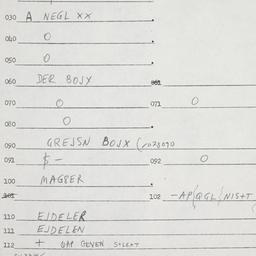 030 A NEGL XX
040 O
050 O
060 DER BOJX 061
070 O 071 O
080 O
090 GREJSN BOJX
091 $ - 092 O
100 MAGSER
101 102
110 EJDELER
111 EJDELEN
112 + GAP GEVEN